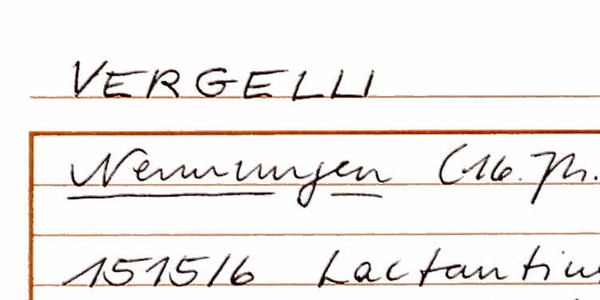 VERGELLI
Nennungen (16. Jh.
1515/6 Lactantiu